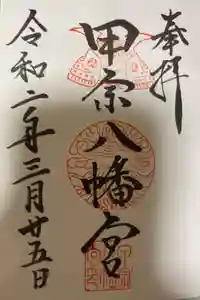 奉拝
甲宗八幡宮
令和二年三月廿五日